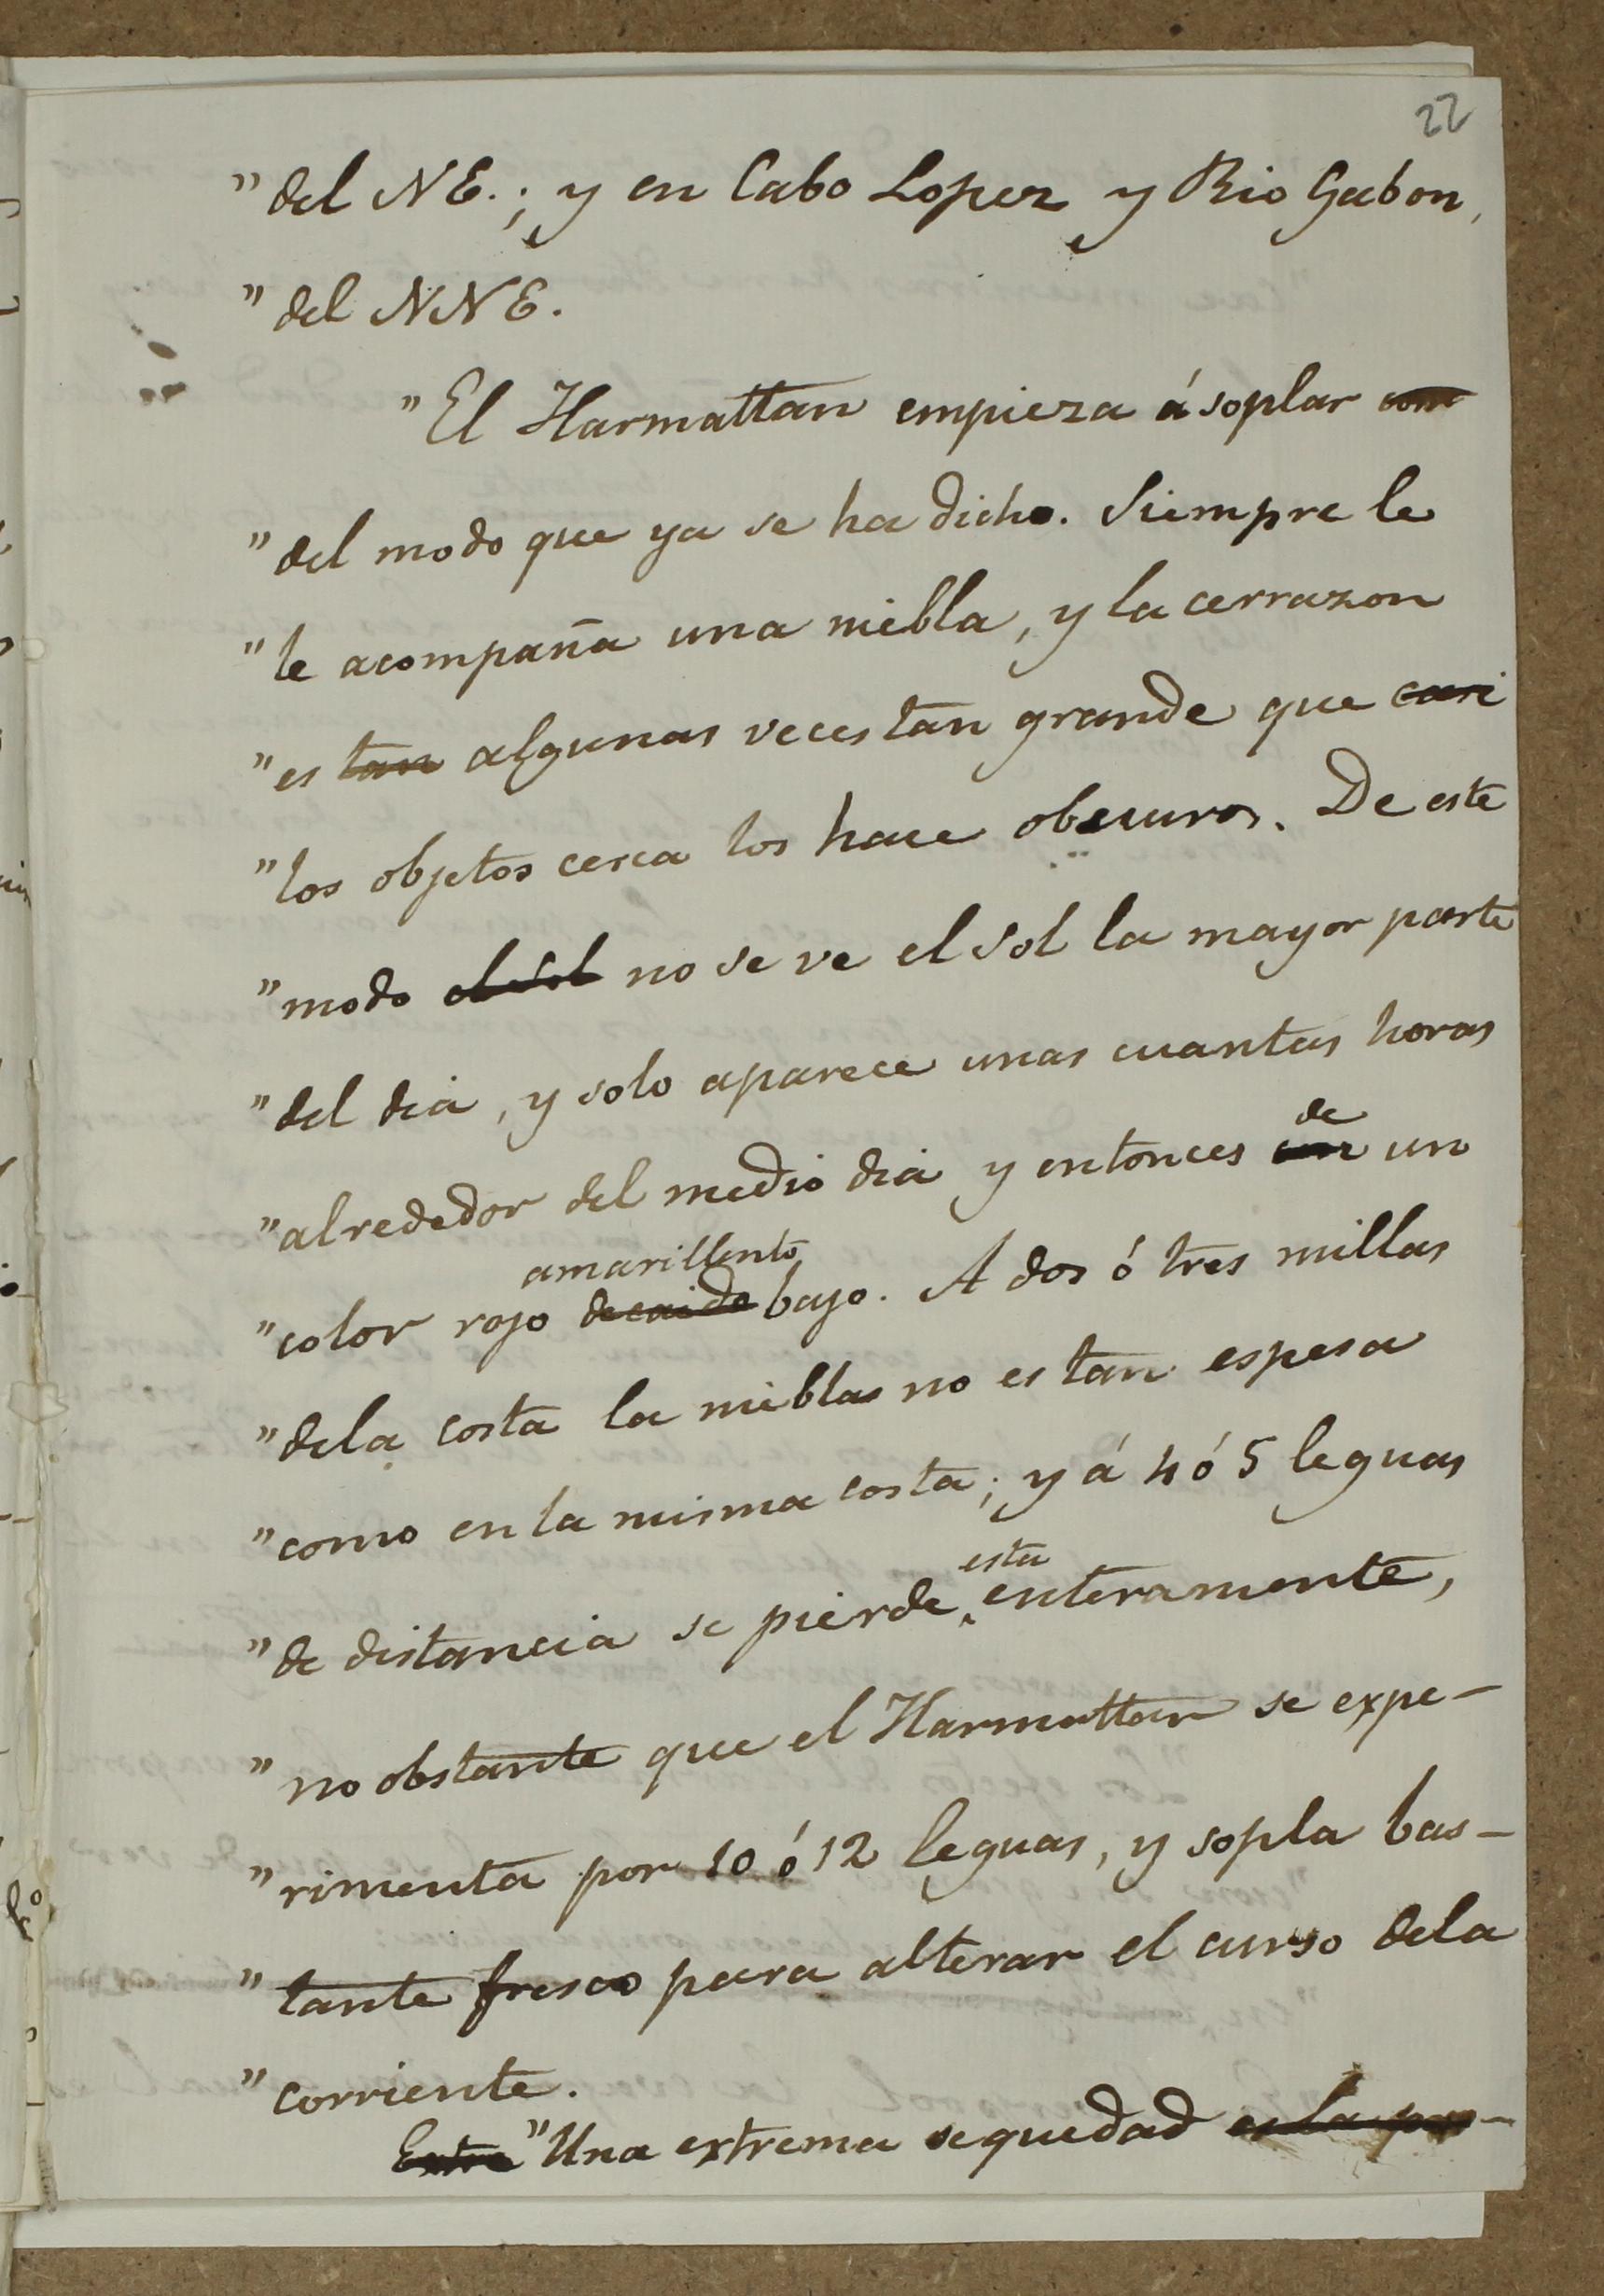 22
"del NE.; y en Cabo Lopez y Rio Gabon,
"del NNE.
"El Harmattan empieza á soplar com
"del modo que ya se ha dicho. Siempre le
"le acompaña una niebla, y la cerrazon
"es tan algunas veces tan grande que casi
"los objetos cerca los hace obscuros. De este
"modo el sol no se ve el sol la mayor parte
"del dia, y solo aparece unas cuantas horas
de
"alrededor del medio dia y entonces con un
amarillento
"color rojo decaido bajo. A dos ó tres millas
"dela costa la nieblas no es tan espesa
"como en la misma costa; y á 4 ó 5 leguas
esta
"de distancia se pierde enteramente,
"no obstante que el Harmattan se expe-
"rimenta por 10 ó 12 leguas, y sopla bas-
"tante fresco para alterar el curso dela
"corriente.
Extre "Una extrema sequedad es la pro-